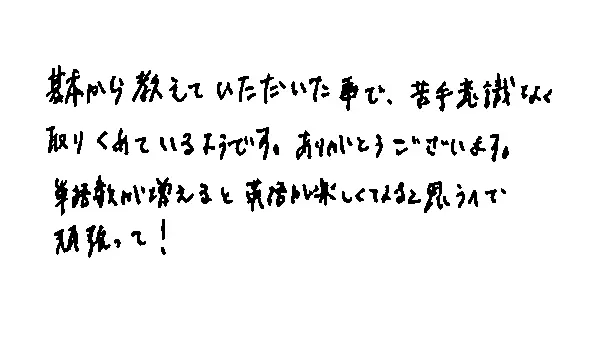 基本から教えていただいた事で、苦手意識なく
取りくめているようです。ありがとうございます。
単語数が増えると英語が楽しくなると思うので
頑張って！